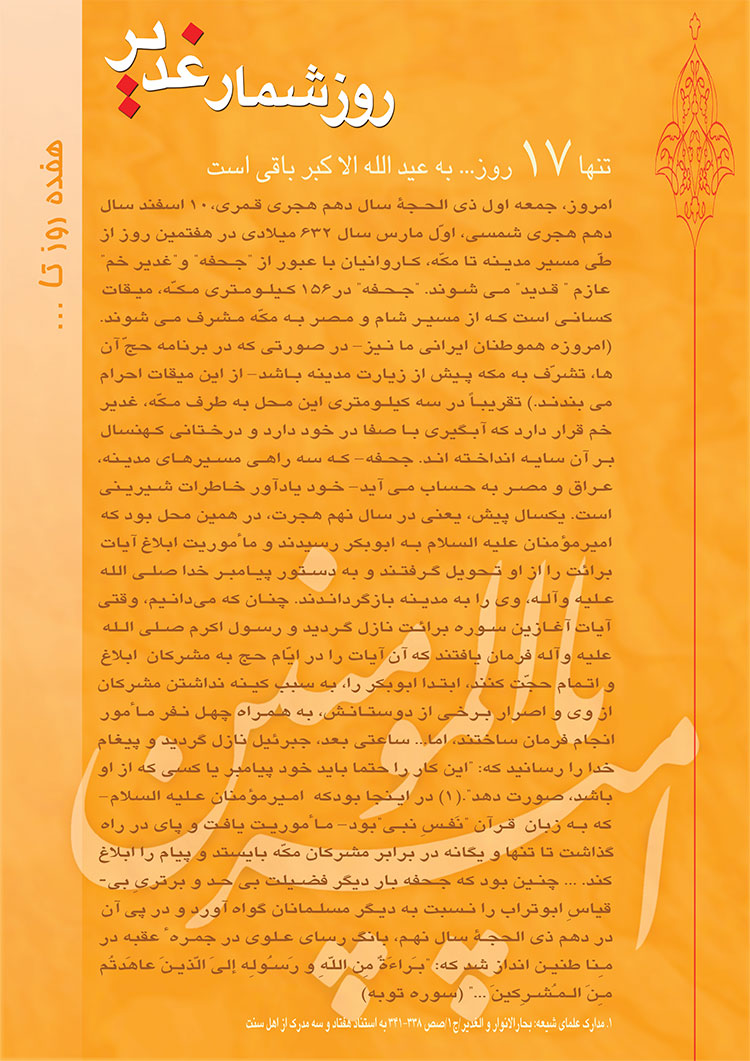 روزشمار غدیر
هفده روز تا ...
تنها ۱۷ روز... به عید الله الاکبر باقی است
امروز، جمعه اول ذی الحجة سال دهم هجری قمری، ۱۰ اسفند سال
دهم هجری شمسی، اوّل مارس سال ۶۳۲ میلادی در هفتمین روز از
طیّ مسیر مدینه تا مکّه، کاروانیان با عبور از "جحفه" و"غدیر خم"
عازم " قدید" می شوند. "جحفه" در۱۵۶ کیلومتری مکّه، میقات
کسانی است که از مسیر شام و مصر به مکّه مشرف می شوند.
(امروزه هموطنان ایرانی ما نیز– در صورتی که در برنامه حجّ آن
ها، تشرّف به مکه پیش از زیارت مدینه باشد– از این میقات احرام
می بندند.) تقریباً در سه کیلومتری این محل به طرف مکّه، غدیر
خم قرار دارد که آبگیری با صفا در خود دارد و درختانی کهنسال
بر آن سایه انداخته اند. جحفه– که سه راهی مسیرهای مدینه،
عراق و مصر به حساب می آید– خود یادآور خاطرات شیرینی
است. یکسال پیش، یعنی در سال نهم هجرت، در همین محل بود که
امیرمؤمنان علیه السلام به ابوبکر رسیدند و مأموریت ابلاغ آیات
برائت را از او تحویل گرفتند و به دستور پیامبر خدا صلی الله
علیه وآله، وی را به مدینه بازگرداندند. چنان که می‌دانیم، وقتی
آیات آغازین سوره برائت نازل گردید و رسول اکرم صلی الله
علیه وآله فرمان یافتند که آن آیات را در ایّام حج به مشرکان ابلاغ
و اتمام حجّت کنند، ابتدا ابوبکر را، به سبب کینه نداشتن مشرکان
از وی و اصرار برخی از دوستانش، به همراه چهل نفر مأمور
انجام فرمان ساختند، اما... ساعتی بعد، جبرئیل نازل گردید و پیغام
خدا را رسانید که: "این کار را حتما باید خود پیامبر یا کسی که از او
باشد، صورت دهد".(۱) در اینجا بودکه امیرمؤمنان علیه السلام–
که به زبان قرآن "نَفسِ نبی"بود– مأموریت یافت و پای در راه
گذاشت تا تنها و یگانه در برابر مشرکان مکّه بایستد و پیام را ابلاغ
کند. ... چنین بود که جحفه بار دیگر فضیلت بی حد و برتریِ بی-
قیاسِ ابوتراب را نسبت به دیگر مسلمانان گواه آورد و در پی آن
در دهم ذی الحجة سال نهم، بانگ رسای علوی در جمرهٔ عقبه در
مِنا طنین انداز شد که: "بَراءَةٌ مِنَ اللّهِ و رَسُولِهِ إلیَ الّذینَ عاهَدتُم
مِنَ المُشرِکینَ ..." (سوره توبه)
۱. مدارک علمای شیعه: بحارالانوار و الغدیر(ج۱)صص ۳۳۸-۳۴۱ به استناد هفتاد و سه مدرک از اهل سنت
یا امیرالمومنین